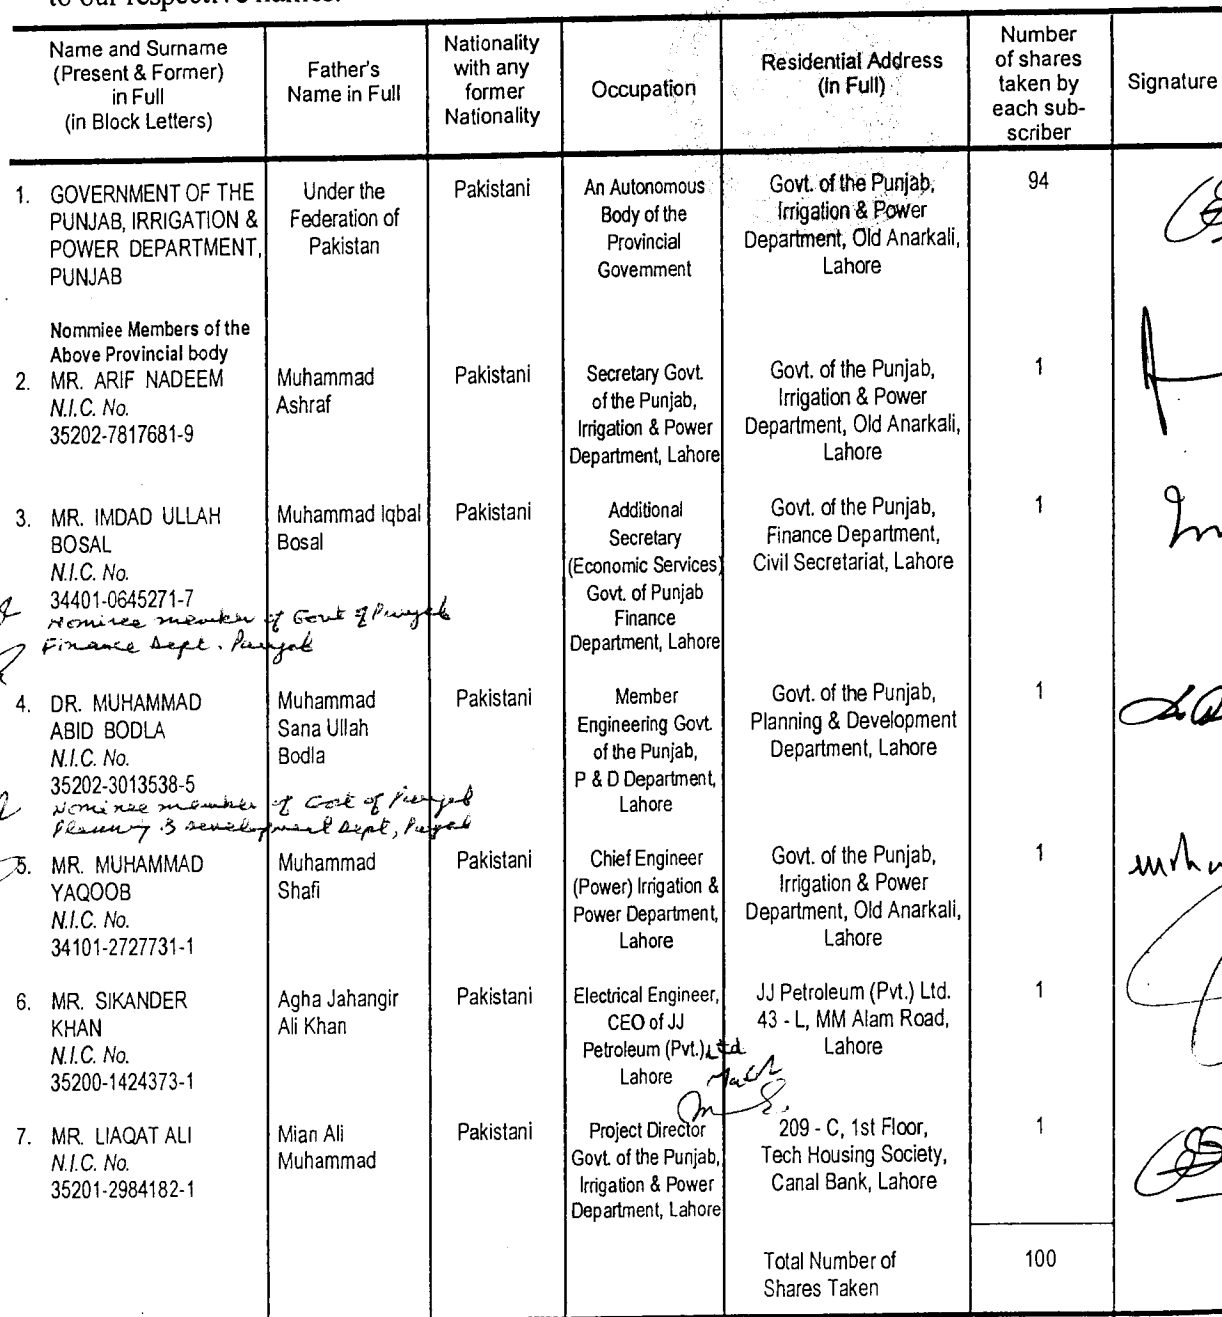 to our respective names.
Name and Surname
(Present & Former)
in Full
(in Block Letters)
Father's
Name in Full
Nationality
with any
former
Nationality
Occupation
Residential Address
(In Full)
Number
of shares
taken by
each sub-
scriber
Signature
1. GOVERNMENT OF THE
PUNJAB, IRRIGATION &
POWER DEPARTMENT,
PUNJAB
Under the
Federation of
Pakistan
Pakistani
An Autonomous
Body of the
Provincial
Government
Govt. of the Punjab,
Irrigation & Power
Department, Old Anarkali,
Lahore
94
Nommiee Members of the
Above Provincial body
2. MR. ARIF NADEEM
N.I.C. No.
35202-7817681-9
Muhammad
Ashraf
Pakistani
Secretary Govt.
of the Punjab,
Irrigation & Power
Department, Lahore
Govt. of the Punjab,
Irrigation & Power
Department, Old Anarkali,
Lahore
1
3. MR. IMDAD ULLAH
BOSAL
N.I.C. No.
34401-0645271-7
Nominee member of Govt of Punjab
Finance Dept. Punjab
Muhammad Iqbal
Bosal
Pakistani
Additional
Secretary
(Economic Services)
Govt. of Punjab
Finance
Department, Lahore
Govt. of the Punjab,
Finance Department,
Civil Secretariat, Lahore
1
4. DR. MUHAMMAD
ABID BODLA
N.I.C. No.
35202-3013538-5
Nominee member of Govt of Punjab
Planning & Development Dept, Punjab
Muhammad
Sana Ullah
Bodla
Pakistani
Member
Engineering Govt.
of the Punjab,
P & D Department,
Lahore
Govt. of the Punjab,
Planning & Development
Department, Lahore
1
5. MR. MUHAMMAD
YAQOOB
N.I.C. No.
34101-2727731-1
Muhammad
Shafi
Pakistani
Chief Engineer
(Power) Irrigation &
Power Department,
Lahore
Govt. of the Punjab,
Irrigation & Power
Department, Old Anarkali,
Lahore
1
6. MR. SIKANDER
KHAN
N.I.C. No.
35200-1424373-1
Agha Jahangir
Ali Khan
Pakistani
Electrical Engineer,
CEO of JJ
Petroleum (Pvt.) Ltd
Lahore
JJ Petroleum (Pvt.) Ltd.
43 - L, MM Alam Road,
Lahore
1
7. MR. LIAQAT ALI
N.I.C. No.
35201-2984182-1
Mian Ali
Muhammad
Pakistani
Project Director
Govt. of the Punjab,
Irrigation & Power
Department, Lahore
209 - C, 1st Floor,
Tech Housing Society,
Canal Bank, Lahore
1
Total Number of
Shares Taken
100